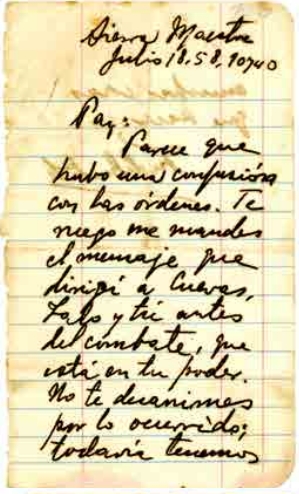 Sierra Maestra
Julio 18, 58, 10 y 40
Paz:
Parece que
hubo una confusión
con las órdenes. Te
ruego me mandes
el mensaje que
dirigí a Cuevas,
Lalo y tú antes
del combate, que
está en tu poder.
No te desanimes
por lo ocurrido;
todavía tenemos